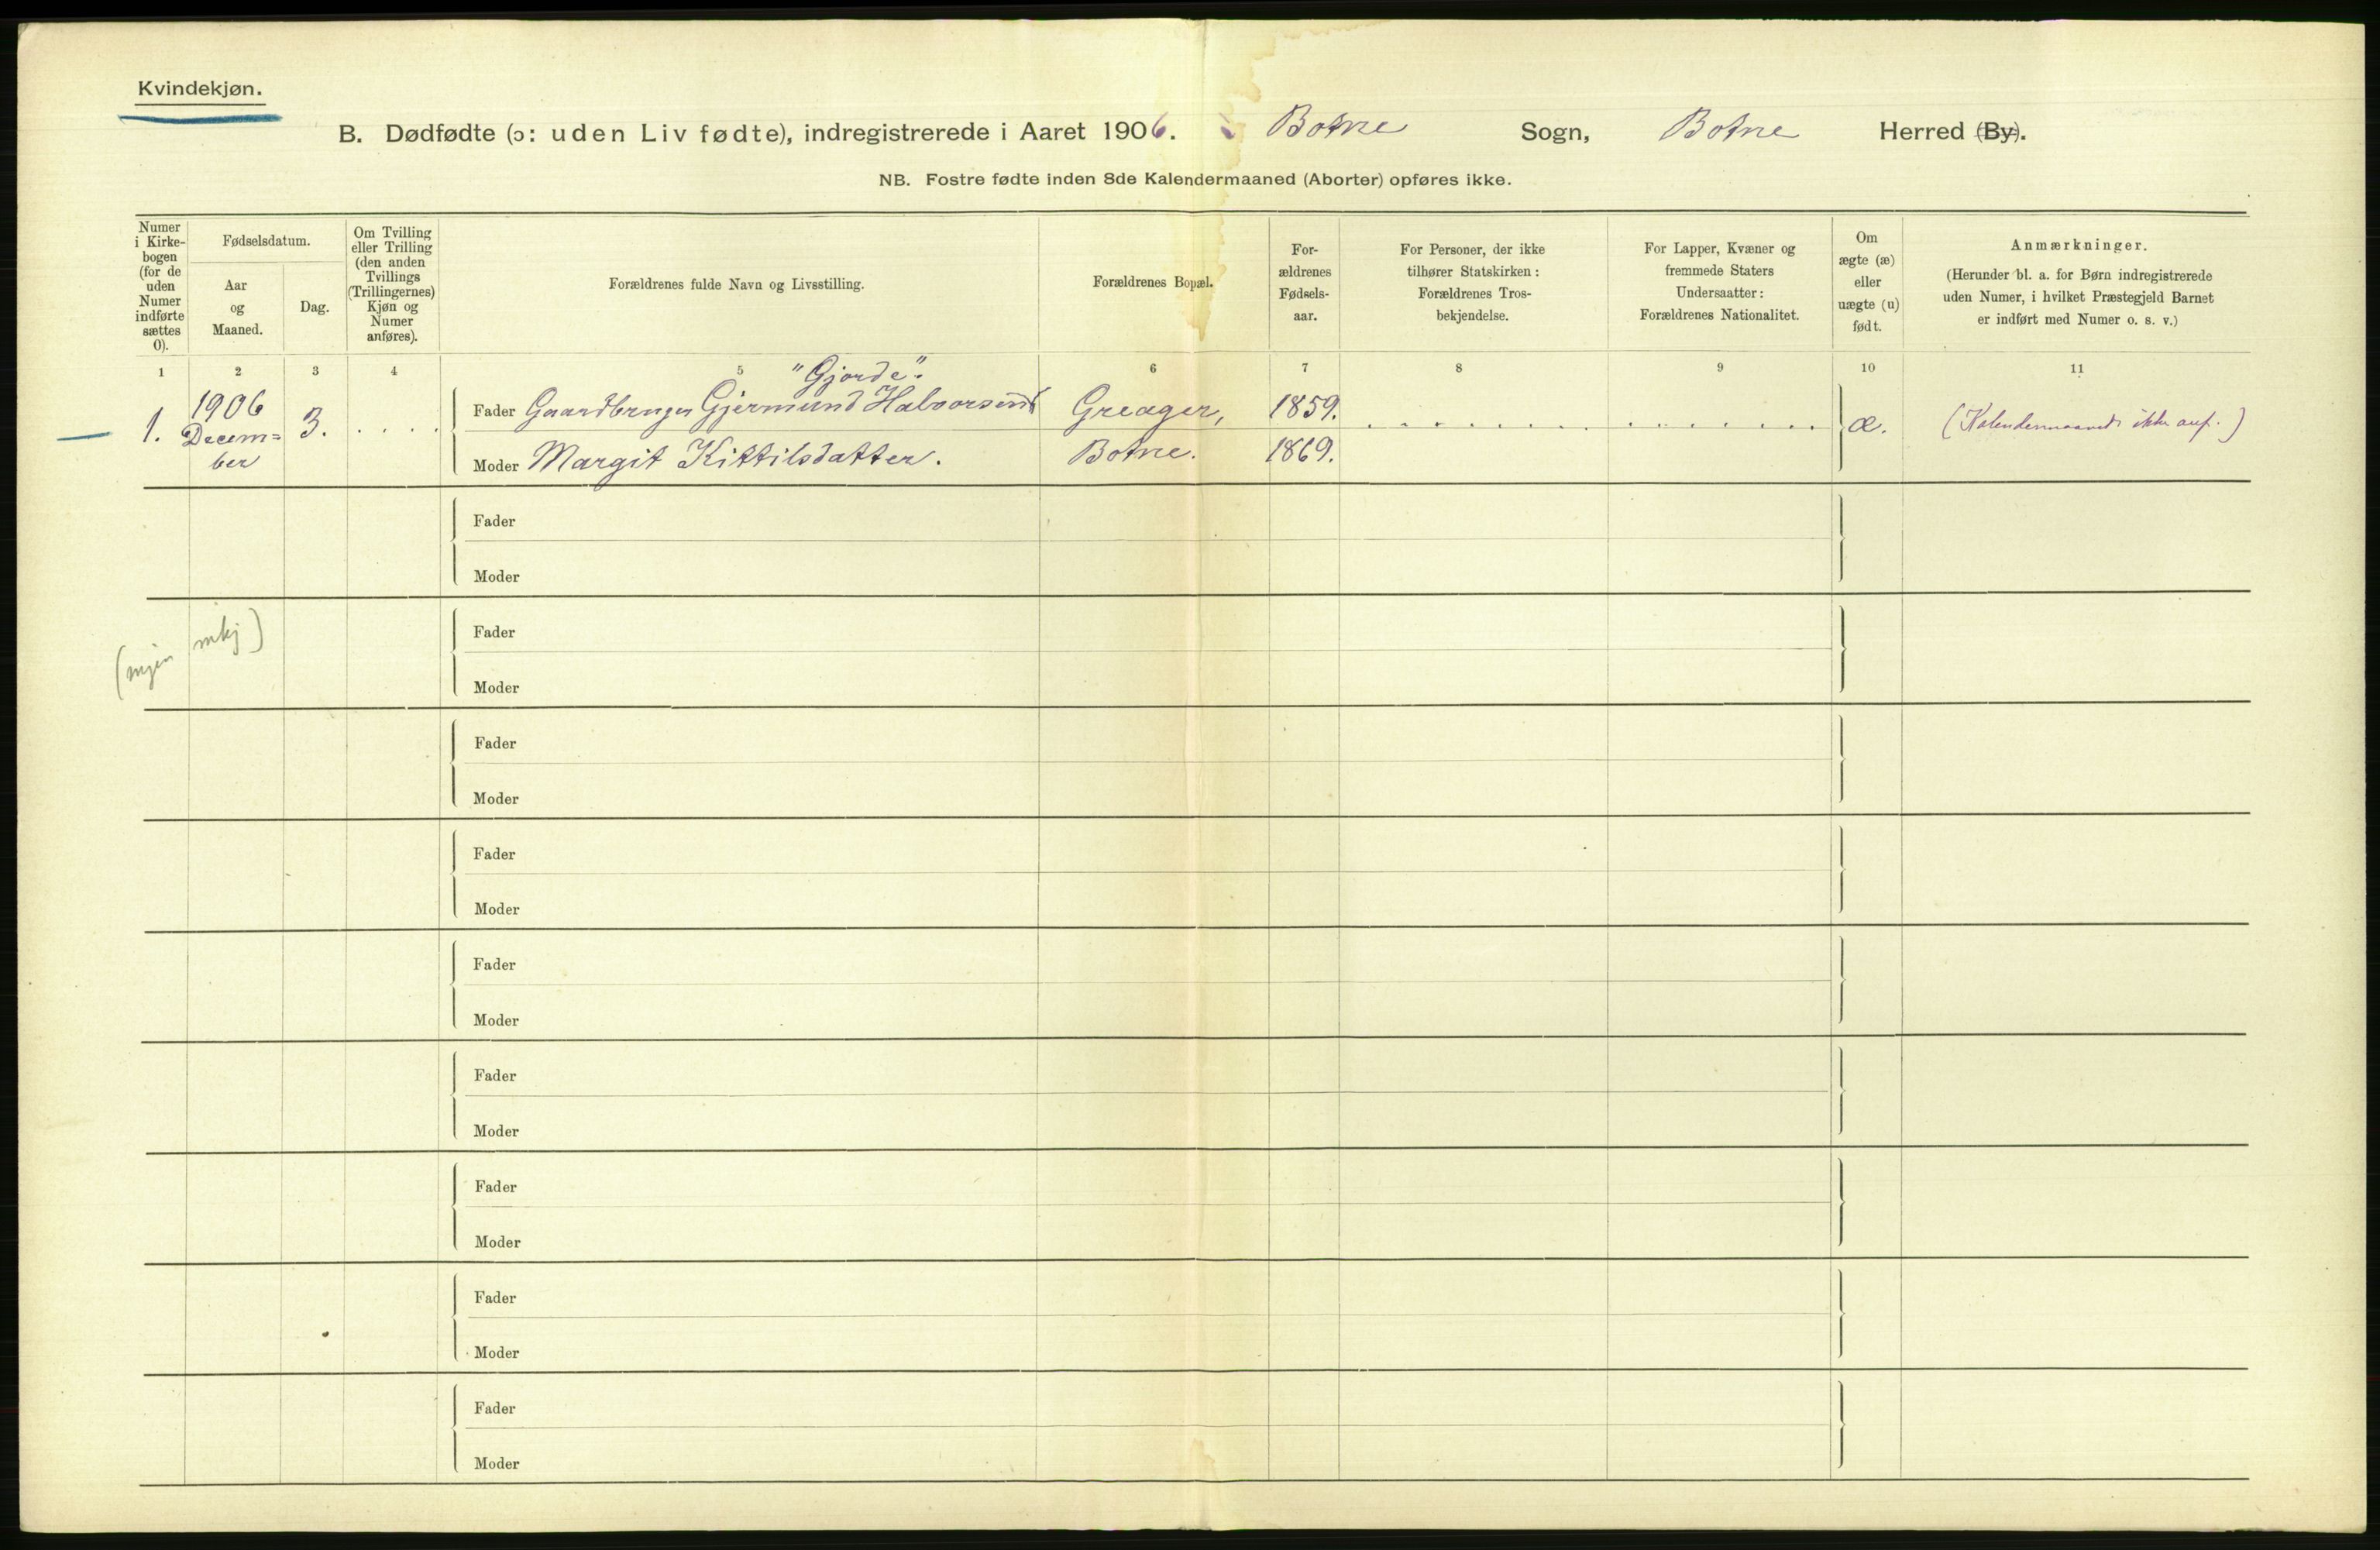 Kvindekjøn.
B. Dødfødte (ɔ: uden Liv fødte), indregistrerede i Aaret 1906. Botne Sogn, Botne Herred (By).
NB. Fostre fødte inden 8de Kalendermaaned (Aborter) opføres ikke.
Numer i Kirke-bogen (for de uden Numer indførte sættes 0).
Fødselsdatum.
Aar og Maaned.
Dag.
Om Tvilling eller Trilling (den anden Tvillings (Trillingernes) Kjøn og Numer anføres).
Forældrenes fulde Navn og Livsstilling.
Forældrenes Bopæl.
For-ældrenes Fødsels-aar.
For Personer, der ikke tilhører Statskirken: Forældrenes Tros-bekjendelse.
For Lapper, Kvæner og fremmede Staters Undersaatter: Forældrenes Nationalitet.
Om ægte (æ) eller uægte (u) født.
Anmærkninger.
(Herunder bl. a. for Børn indregistrerede uden Numer, i hvilket Præstegjeld Barnet er indført med Numer o. s. v.)
1 2 3 4 5 6 7 8 9 10 11
"Gjorde".
1. 1906 Decem=ber 3. . . . .
Fader Gaardbruger Gjermund Halvorsen Greager, 1859.
Moder Margit Kittilsdatter. Botne. 1869.
æ. (Kalendermaaned ikke anf.)
Fader
Moder
mkj)
Fader
Moder
Fader
Moder
Fader
Moder
Fader
Moder
Fader
Moder
Fader
Moder
Fader
Moder
Fader
Moder